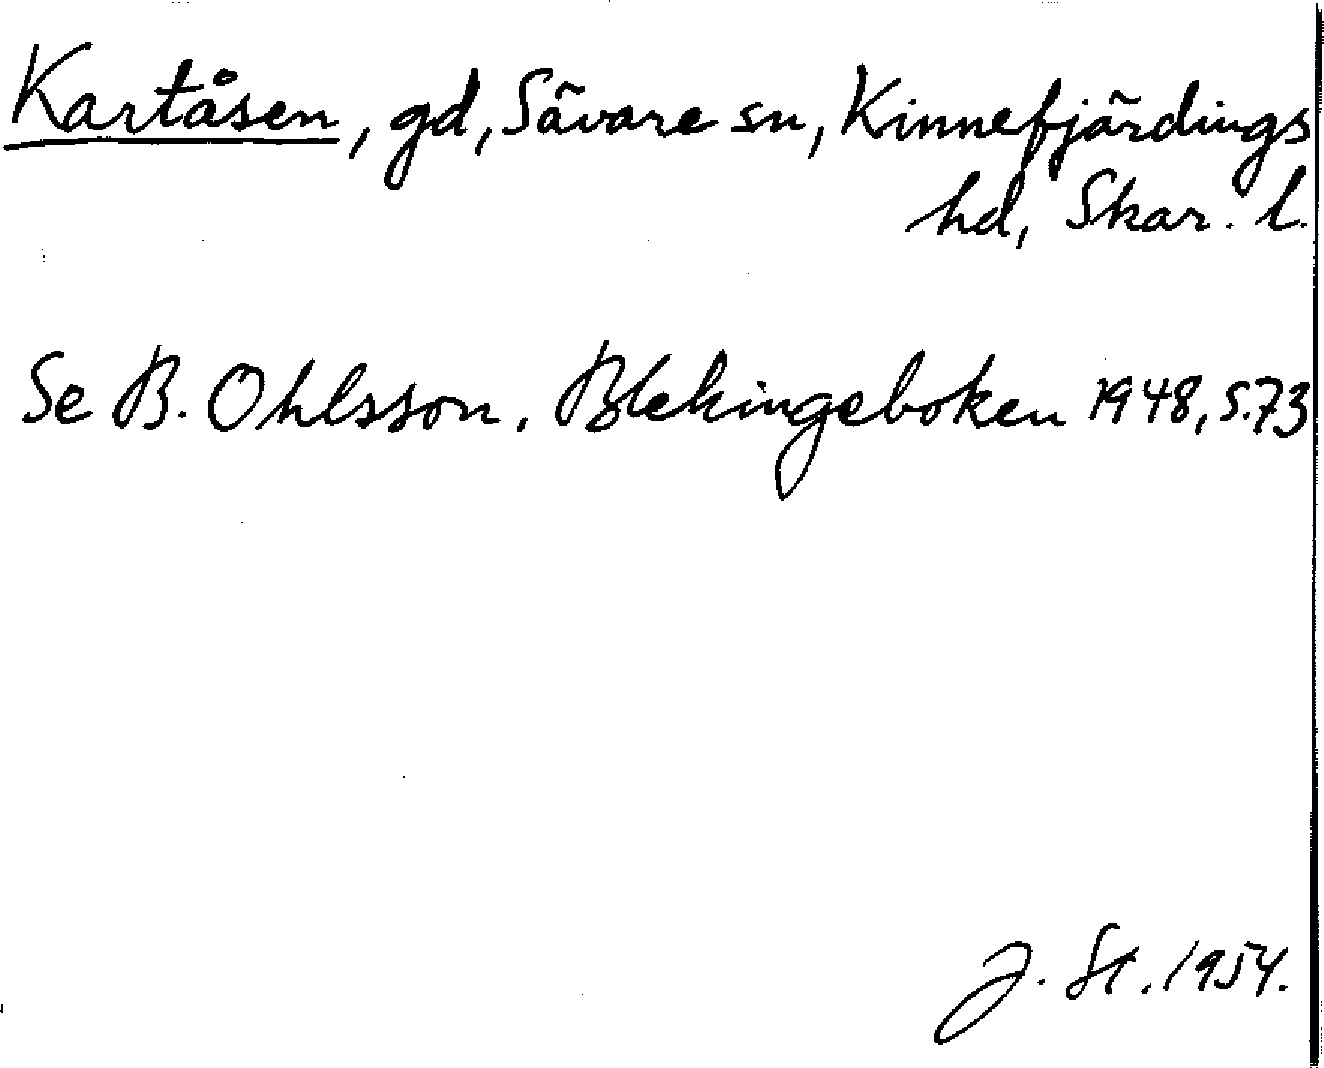 Kartåsen, gd, Sävare sn, Kinnefjärdings
hd, Skar. l.
Se B. Ohlsson, Blekingeboken 1948, s.73
J. St. 1954.